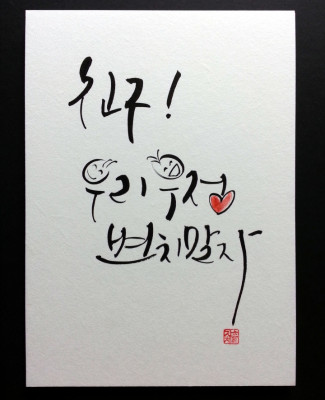 친구!
우리우정
변치말자